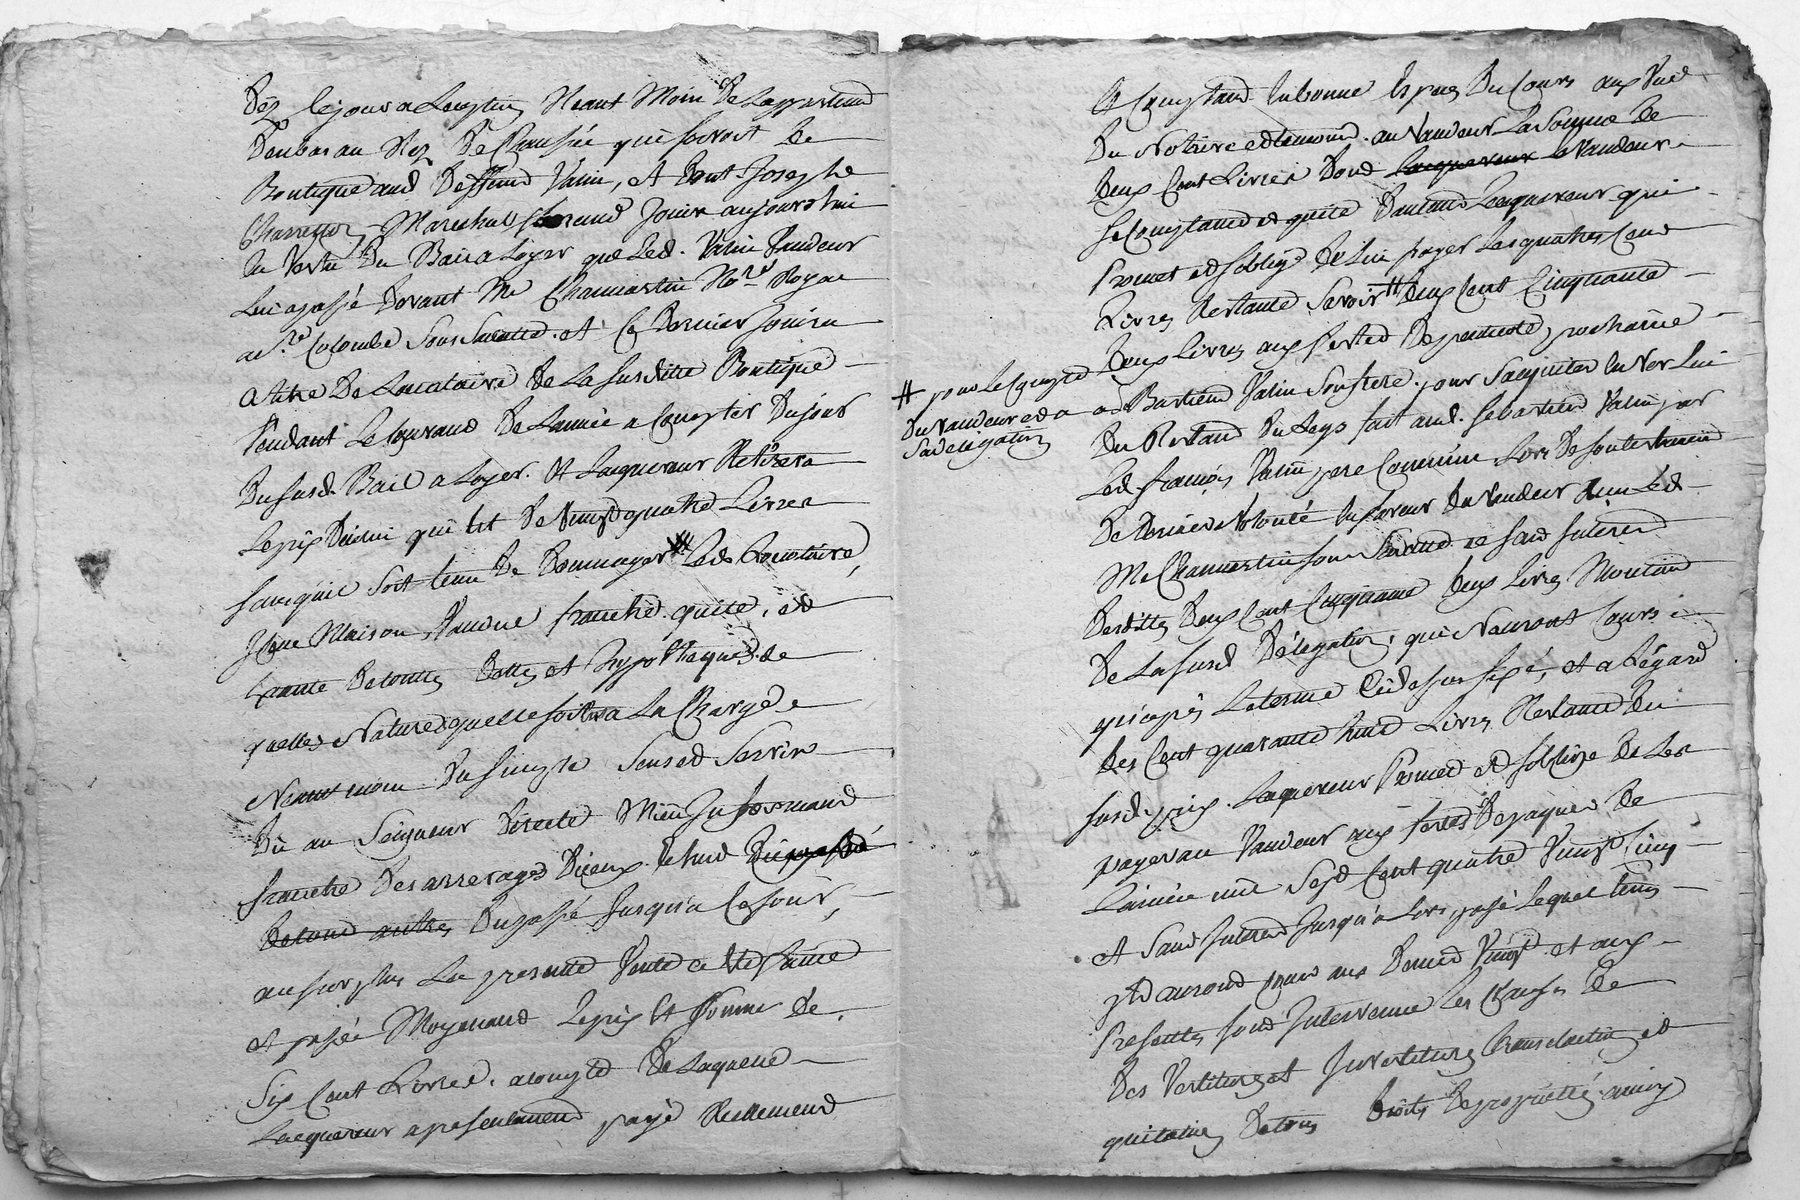 Dez lejour a Compter Neant Moin De Lappartemd
Denbas au Rez De Chaussée qui servoit De
Boutique aud Deffund Valin, et dont Josephe
Charreton Marechal ferrand Jouir aujourdhui
En Vertu Du Bail a Loyer que Led. Valin Vandeur
Lui a passé Devant Me Chanmartin Nore Royal
a Ste Colombe Soussigné et Ce Dernier Jouira
a titre De Locataire De La Susditte Boutique
Pendant Le Courand De Lannée a Compter Dujour
Dususd. Bail a Loyer. Et Laquereur Retirera
Leprix Dicelui qui Est De Vingtquatre Livres
sans quil soit tenu De Dommager Led Locataire,
Icelle Maison Vandue franche, quitte, et
Exante Detouttes Dettes et hypotheques de
quelles Natures quelle soit a La Charge
Neant moin Du simple Sens et Servis
Du au Seigneur Directe Mieu Informand
franche Des arrerages Diceux
Dupassé Jusqu'a Cejour,
ausurplus La presente Vente a Été faitte
et passée Moyenand Leprix Et Somme De
Six Cent Livres, acompte De Laquelle
Laquereur a presentement payé Reellement
Et Comptand En bonne Espece Du Cours aux Vue
Du Notaire et temoins au Vandeur La Somme De
Deux Cent Livres Dond Laquereur Le Vandeur
se Comptand et quitte Dautand Laquereur qui
Promet et soblige De Lui payer Les quatres Cent
Livres Restante Savoir # Deux Cent Cinquante
Deux Livres aux festes De pentecote prochaine
# pour Le Compte
Du Vandeur et a
Sa delegation
a Bastiend Valin Son frere pour Saquiter En Ver Lui
Du Restand Du Legs fait aud. Sebastiend Valin par
Led francois Valin pere Commun Lors De son testament
De Derniere Volonté En faveur Du Vandeur Reçu Led
Me Chanmartin Soussigné et sans Interest
Desdittes Deux Cent Cinquante Deux Livres Montand
De La Susd Délégation, qui Nauront Cours
quapres Leterme Cidessus fixé, et a Légard
Des Cent quarante huit Livres Restante Du
Susd. prix. Laquereur Promet et soblige De Les
payer au Vandeur aux festes De paques De
Lannée mil Sept Cent quatre Vingt Cinq
et Sand Interest Jusqu'a Lors, passé Lequel tems
Ils aurond Cours aux Denier Vingt et aux
Presentes sond Intervenue Les Clauses De
Des Vestitures et Investitures Translation et
quitaine Detous Droits De proprietté, ainsy